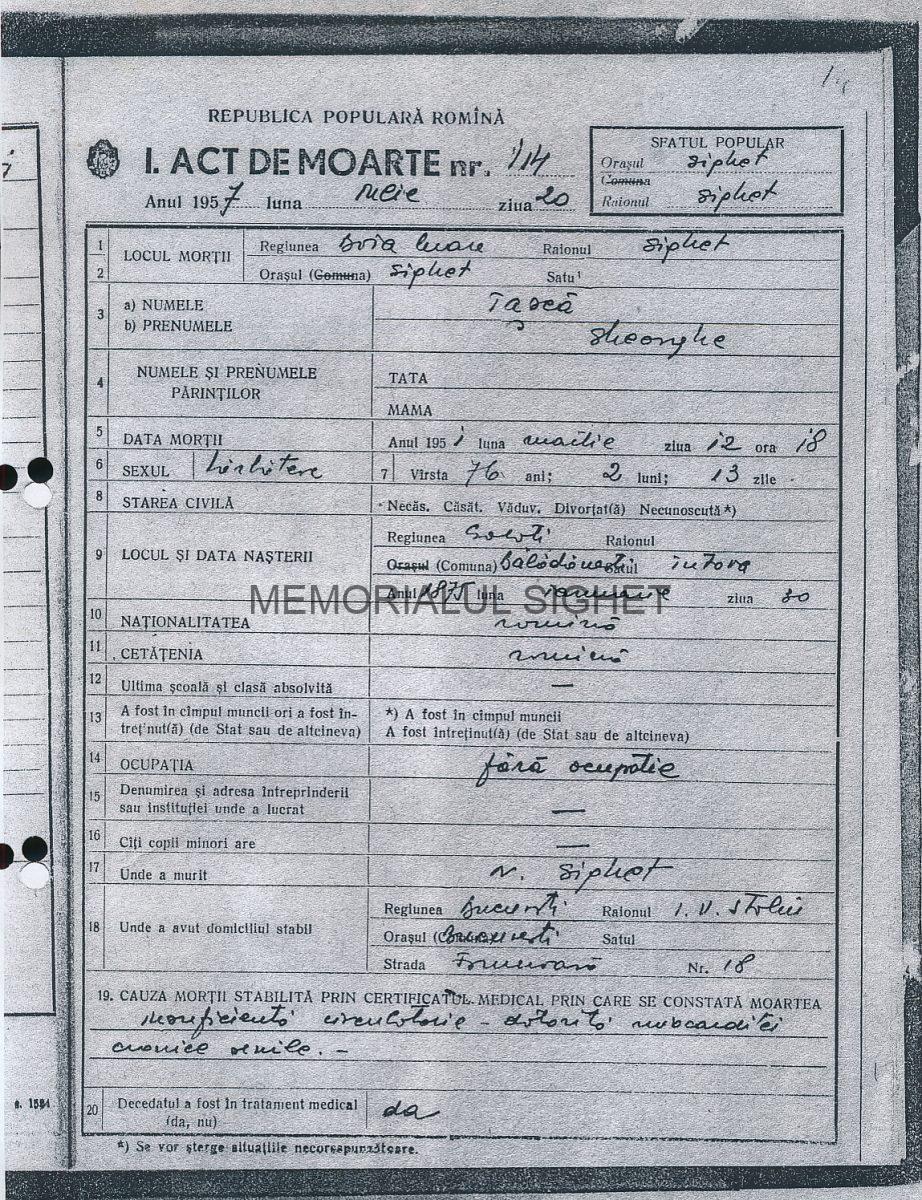 REPUBLICA POPULARĂ ROMÎNĂ
I. ACT DE MOARTE nr. 114
Anul 1957 luna ziua 20
SFATUL POPULAR
Orașul Sighet
Comuna
Raionul Sighet
1 2 LOCUL MORȚII Regiunea Baia Mare Raionul Sighet
Orașul (Comuna) Sighet Satu¹
3 a) NUMELE Tașcă
b) PRENUMELE Gheorghe
4 NUMELE ȘI PRENUMELE PĂRINȚILOR TATA
MAMA
5 DATA MORȚII Anul 1951 luna martie ziua 12 ora 18
6 SEXUL bărbătesc 7 Vîrsta 76 ani; 2 luni; 13 zile
8 STAREA CIVILĂ Necăs. Căsăt. Văduv. Divorțat(ă) Necunoscută*)
9 LOCUL ȘI DATA NAȘTERII Regiunea Galați Raionul
Orașul (Comuna) Bălăbănești Satul
Anul 1875 luna ianuarie ziua 30
MEMORIALUL SIGHET
10 NAȚIONALITATEA romînă
11 CETĂȚENIA romînă
12 Ultima școală și clasă absolvită —
13 A fost în cîmpul muncii ori a fost în- *) A fost în cîmpul muncii
treținut(ă) (de Stat sau de altcineva) A fost întreținut(ă) (de Stat sau de altcineva)
14 OCUPAȚIA fără ocupație
15 Denumirea și adresa întreprinderii
sau instituției unde a lucrat —
16 Cîți copii minori are —
17 Unde a murit Sighet
18 Unde a avut domiciliul stabil Regiunea București Raionul I. V. Stalin
Orașul București Satul
Strada Nr. 18
19. CAUZA MORȚII STABILITĂ PRIN CERTIFICATUL MEDICAL PRIN CARE SE CONSTATĂ MOARTEA
insuficiență circulatorie – datorită miocarditei
cronice senile. –
20 Decedatul a fost în tratament medical da
(da, nu)
s. 1584
*) Se vor șterge situațiile necorespunzătoare.